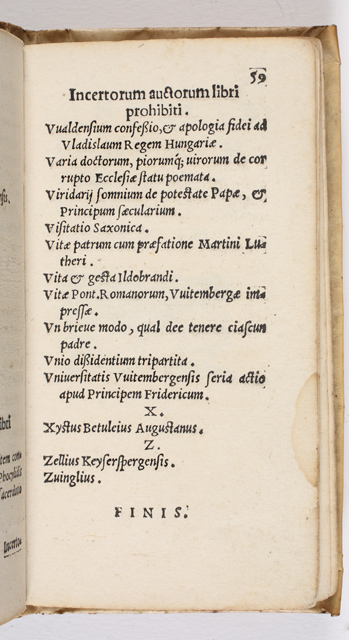 59
Incertorum auctorum libri
prohibiti.
Vualdensium confeßio, & apologia fidei ad
Vladislaum Regem Hungariæ.
Varia doctorum, piorumq́; uirorum de cor
rupto Ecclesiæ statu poemata.
Viridarij somnium de potestate Papæ, &
Principum sæcularium.
Visitatio Saxonica.
Vitæ patrum cum præfatione Martini Lu=
theri.
Vita & gesta Ildobrandi.
Vitæ Pont. Romanorum, Vuitembergæ im=
pressæ.
Vn brieue modo, qual dee tenere ciascun
padre.
Vnio dißidentium tripartita.
Vniuersitatis Vuitembergensis seria actio
apud Principem Fridericum.
X.
Xystus Betuleius Augustanus.
Z.
Zellius Keyserspergensis.
Zuinglius.
FINIS.